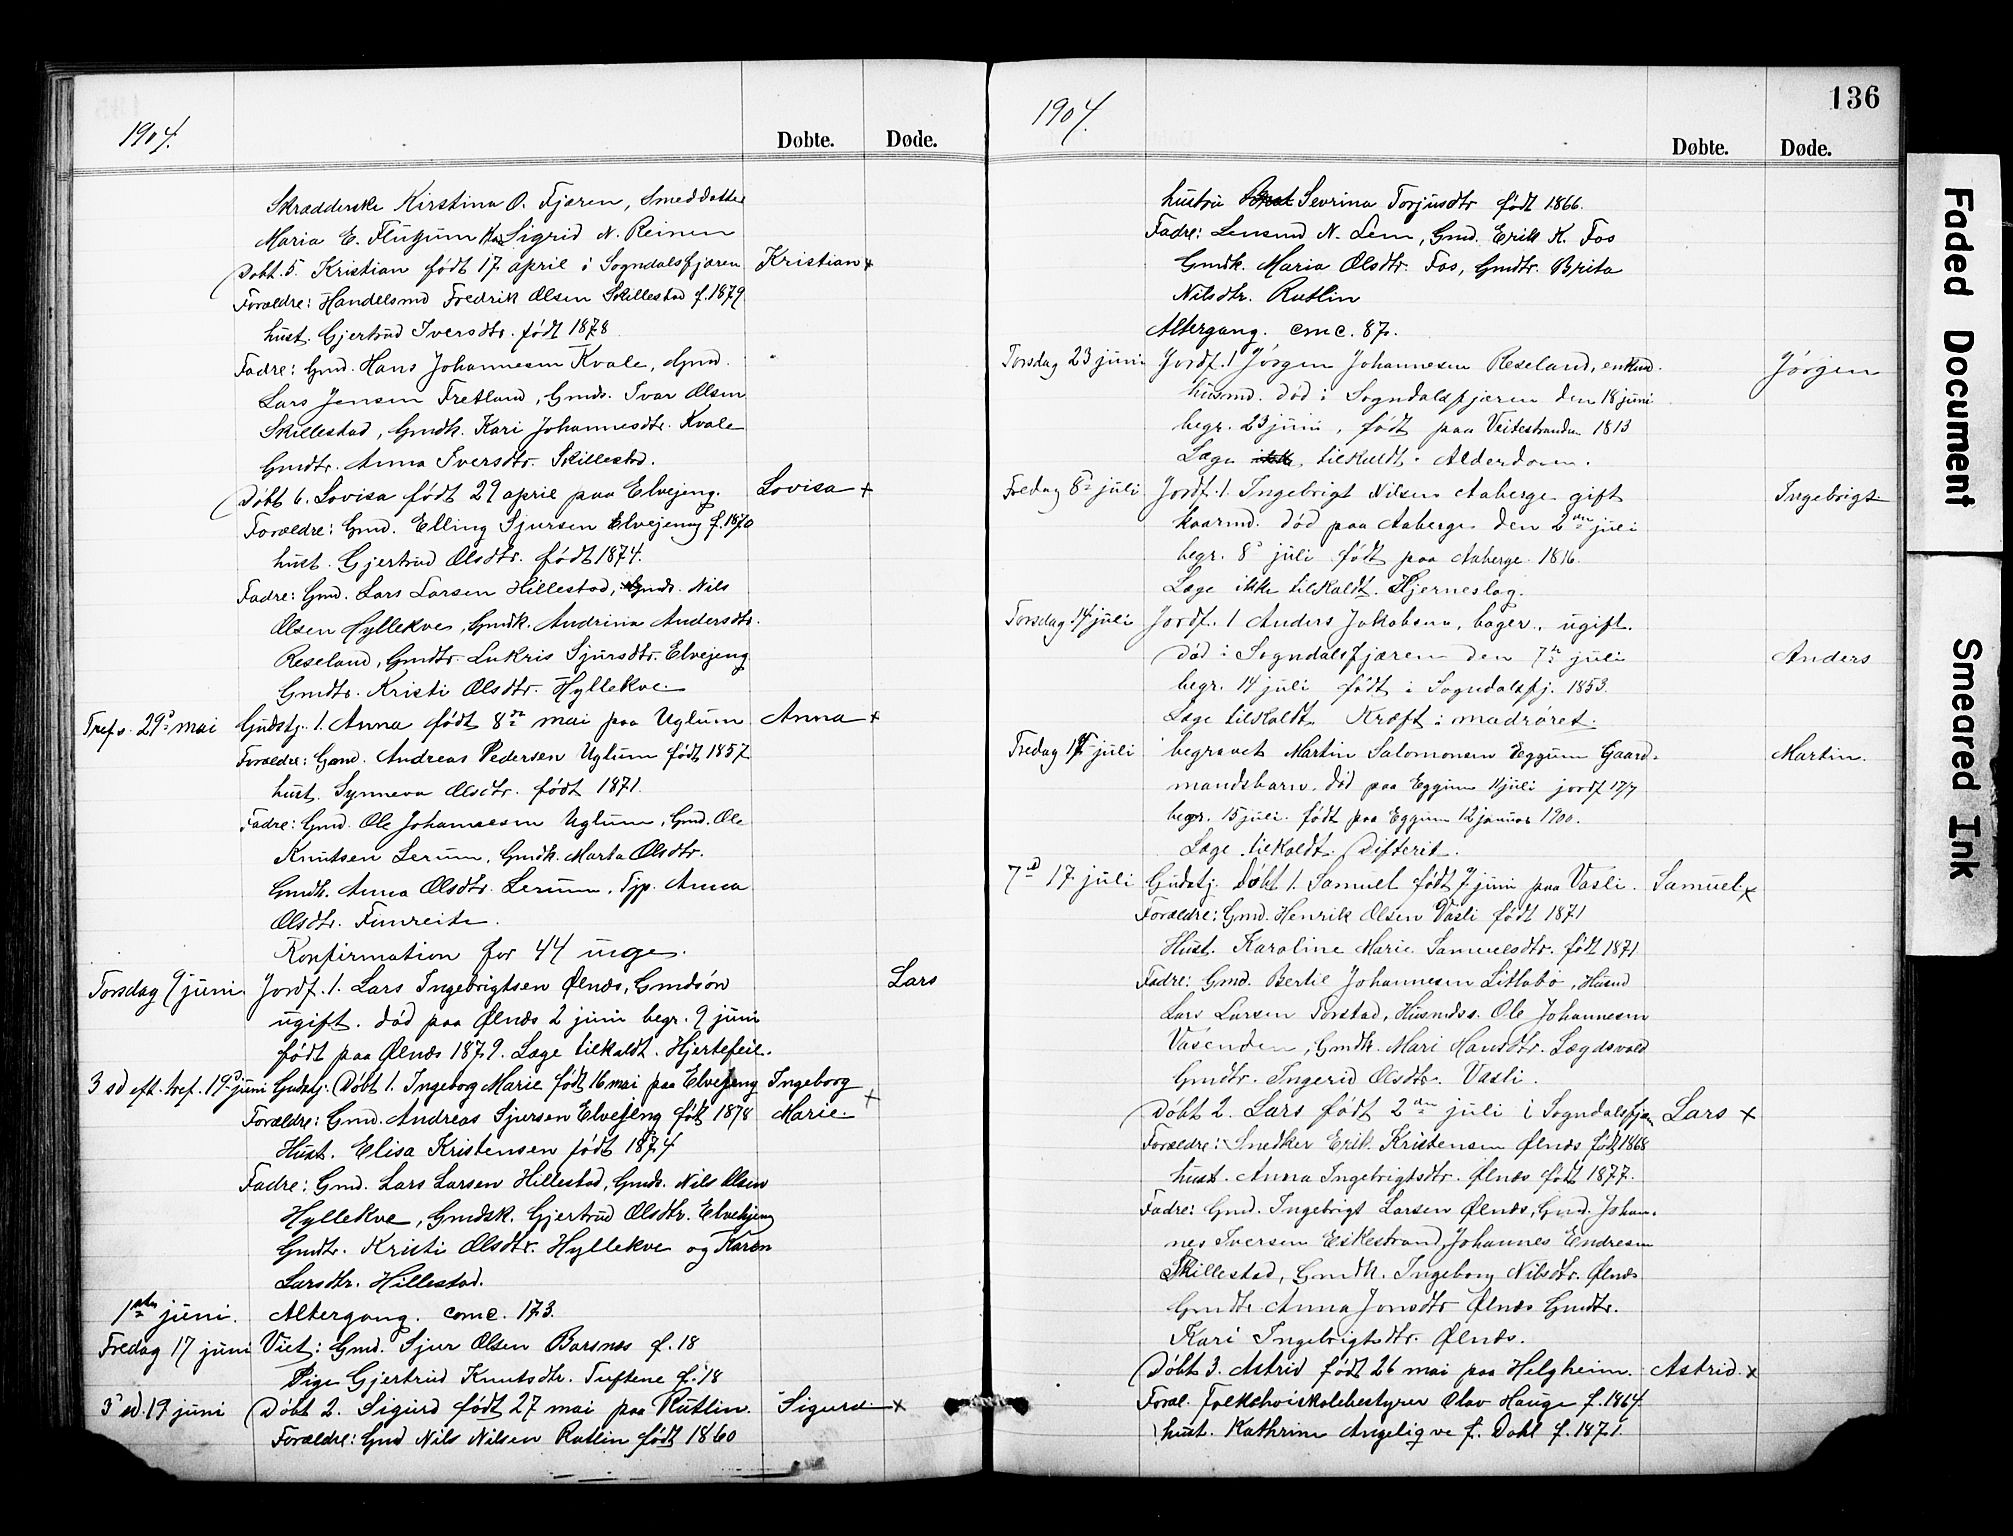 1904.
Døbte.
Døde.
Skrædderske Kirstina O. Fjæren, Smeddatter
Maria E. Flugum Sigrid N. Reinen
Døbt. 5. Kristian født 17 april i Sogndalsfjæren Kristian x
Forældre: Handelsmd Fredrik Olsen Skillestad f. 1879
hust. Gjertrud Iversdtr. født 1878
Fadre: Gmd. Hans Johannesen Kvale, Gmd.
Lars Jensen Fretland, Gmds. Ivar Olsen
Skillestad, Gmdk. Kari Johannesdtr. Kvale
Gmdtr. Anna Iversdtr. Skillestad.
Døbt 6. Lovisa født 29 april paa Elvejeng. Lovisa x
Forældre: Gmd. Elling Sjursen Elvejeng f. 1870
hust. Gjertrud Olsdtr. født 1874.
Fadre: Gmd. Lars Larsen Hillestad, Gmds. Nils
Olsen Hyllekve, Gmdk. Andrina Andersdtr.
Reseland, Gmdtr. Lukris Sjursdtr. Elvejeng
Gmdtr. Kristi Olsdtr. Hyllekve.
Tref. s. 29d mai Gudstj. 1. Anna født 8de mai paa Uglum Anna x
Forældre: Gmd. Andreas Pedersen Uglum født 1857
hust. Synneva Olsdtr. født 1871.
Fadre: Gmd. Ole Johannesen Uglum, Gmd. Ole
Knutsen Lerum, Gmdk. Marta Olsdtr.
Gmdk. Anna Olsdtr. Lerum, Tjp. Anna
Olsdtr. Fimreite.
Konfirmation for 44 unge.
Torsdag 9 juni. Jordf. 1. Lars Ingebrigtsen Ølnæs, Gmdsøn Lars
ugift. død paa Ølnæs 2 juni begr. 9 juni
født paa Ølnæs 1879. Læge tilkaldt. Hjertefeil.
3 sd eft. tref. 19d juni Gudstj. Døbt 1. Ingeborg Marie født 16 mai paa Elvejeng Ingeborg
Forældre: Gmd. Andreas Sjursen Elvejeng født 1878 Marie x
Hust. Elisa Kristensen født 1874
Fadre: Gmd. Lars Larsen Hillestad, Gmds. Nils Olsen
Hyllekve, Gmdsk. Gjertrud Olsdtr. Elvehjeng
Gmdtr. Kristi Olsdtr. Hyllekve og Karen
Larsdtr. Hillestad.
juni. Altergang. comc. 173.
Fredag 17 juni Viet: Gmd. Sjur Olsen Barsnes f. 18
Pige Gjertrud Knutsdtr. Tuftene f. 18
3d sd. 19 juni Døbt 2. Sigurd født 27 mai paa Rutlin. Sigurd x
Forældre: Gmd Nils Nilsen Rutlin født 1860
1904.
136
Døbte.
Døde.
hustru Sevrina Torjusdtr født 1866.
Fadre: Lensmd N. Lem, Gmd. Erik K. Fos
Gmdk. Maria Olsdtr. Fos, Gmdtr. Brita
Nilsdtr. Rutlin
Altergang. comc. 87.
Torsdag 23 juni Jordf. 1 Jørgen Johannesen Reseland, enkmd. Jørgen
husmd. død i Sogndalsfjæren den 18 juni
begr. 23 juni, født paa Veitestranden 1813
Læge ikke tilkaldt. Alderdom.
Fredag 8d juli Jordf. 1. Ingebrigt Nilsen Aaberge gift Ingebrigt
kaarmd. død paa Aaberge den 2den juli
begr. 8d juli født paa Aaberge 1816.
Læge ikke tilkaldt. Hjerneslag.
Torsdag 14 juli Jordf. 1 Anders Jakobsen, bager, ugift.
død i Sogndalsfjæren den 7de juli Anders
begr. 14 juli født i Sogndalsfj. 1853.
Læge tilkaldt. Kræft i madrøret.
Fredag juli begravet Martin Salomonsen Eggum Gaard- Martin.
mandsbarn. død paa Eggum 11 juli jordf 17/7
begr. 15 juli. født paa Eggum 12 januar 1900.
Læge tilkaldt. Difterit.
7d 17 juli Gudstj. Døbt 1. Samuel født 9 juni paa Vasli. Samuel. x
Forældre: Gmd. Henrik Olsen Vasli født 1871
Hust. Karoline Marie Samuelsdtr. født 1871
Fadre: Gmd. Bertil Johannesen Litlabø, Husmd
Lars Larsen Torstad, Husmdss. Ole Johannesen
Vasenden, Gmdk. Mari Hansdtr. Lægdsvold
Gmdtr. Ingerid Olsdtr. Vasli.
Døbt 2. Lars født 2den juli i Sogndalsfjæren Lars x
Forældre: Snedker Erik Kristensen Ølnæs født 1868
hust. Anna Ingebrigtsdtr. Ølnæs født 1877.
Fadre: Gmd. Ingebrigt Larsen Ølnæs, Gmd. Johan-
nes Iversen Eskestrand, Johannes Endresen
Skillestad, Gmdk. Ingeborg Nilsdtr. Ølnæs
Gmdtr. Anna Jonsdtr Ølnæs Gmdtr.
Kari Ingebrigtsdtr. Ølnæs.
Døbt 3. Astrid født 26 mai paa Helgheim. Astrid. x
Foræl. Folkehøiskolebestyrer Olav Hauge f. 1864.
hust. Kathrine Angeliqve f. Dahl f. 1871.
Faded Document
Smeared Ink